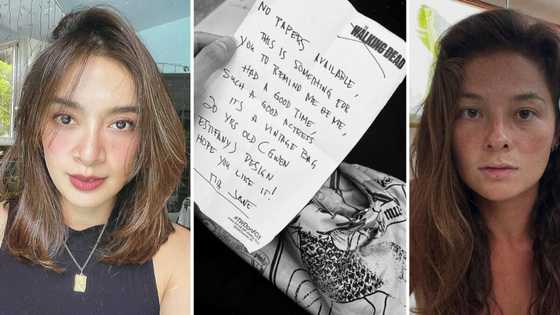 THE
WALKING DEAD
NO TAPERS AVAILABLE,
THIS IS SOMETHING FOR
YOU TO REMIND ME BE ME,
HAD A GOOD TIME,
SUCH A GOOD ACTRESS
IT'S A VINTAGE BAG
20 YRS OLD (GWEN
ESTIFANY) DESIGN
HOPE YOU LIKE IT!
JANE
#TWDonFOX